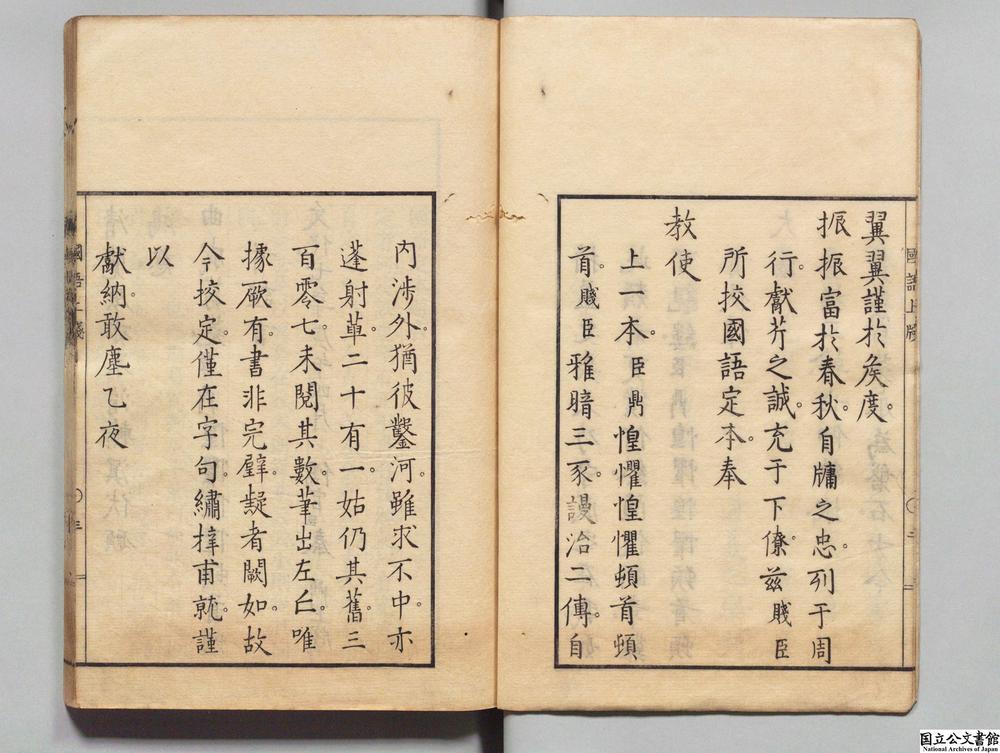 翼翼謹於矦度。
振振富於春秋。自牖之忠。列于周
行。獻芹之誠。充于下僚。玆賤臣
所挍國語定本。奉
教使
上本。臣鼎惶懼惶懼頓首頓
首。賤臣雅暗三豕。謾治二傳。自
國語上牋
〇二
內涉外。猶彼鑿河。雖求不中。亦
蓬射革。二十有一。姑仍其舊。三
百零七。未閱其數。筆出左丘。唯
據厥有。書非完璧。疑者闕如。故
今挍定。僅在字句。繡梓甫就。謹
以
獻納。敢塵乙夜
國語上牋
〇三
国立公文書館
National Archives of Japan